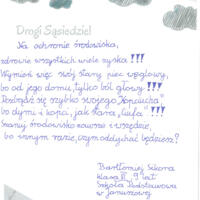 Drogi Sąsiedzie!
Na ochronie środowiska,
zdrowie wszystkich wiele zyska !!!
Wymień więc swój stary piec węglowy,
bo od jego domu, tylko ból głowy !!!
Pozbądź się szybko swojego "Kopciucha"
bo dymi i kopci, jak stara "Lufa" !!!
Szanuj środowisko zawsze i wszędzie,
bo innym razie, czym oddychać będziesz?
Bartłomiej Sikora
klasa III, 9 lat
Szkoła Podstawowa
w Januszowej